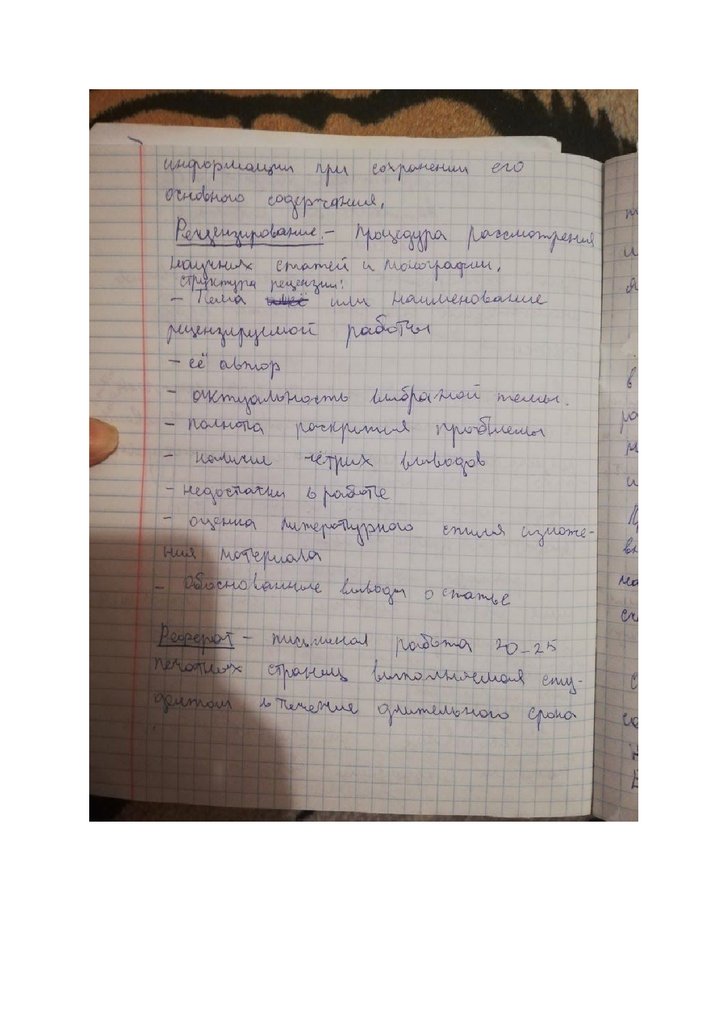 информации при сохранении его
основного содержания.
Рецензирование - процедура рассмотрения
научных статей и монографии.
структура рецензии:
- Тема или наименование
рецензируемой работы
- её автор
- актуальность выбраной темы.
- полнота раскрытия проблемы
- наличие чётких выводов
- недостатки в работе
- оценка литературного стиля изложе-
ния материала
- Обоснованные выводы о статье
Реферат - письменая работа 20-25
печатных страниц выполняемая сту-
дентом в течение длительного срока